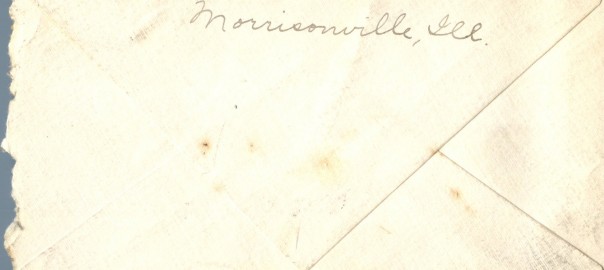 Morrisonville, Ill.